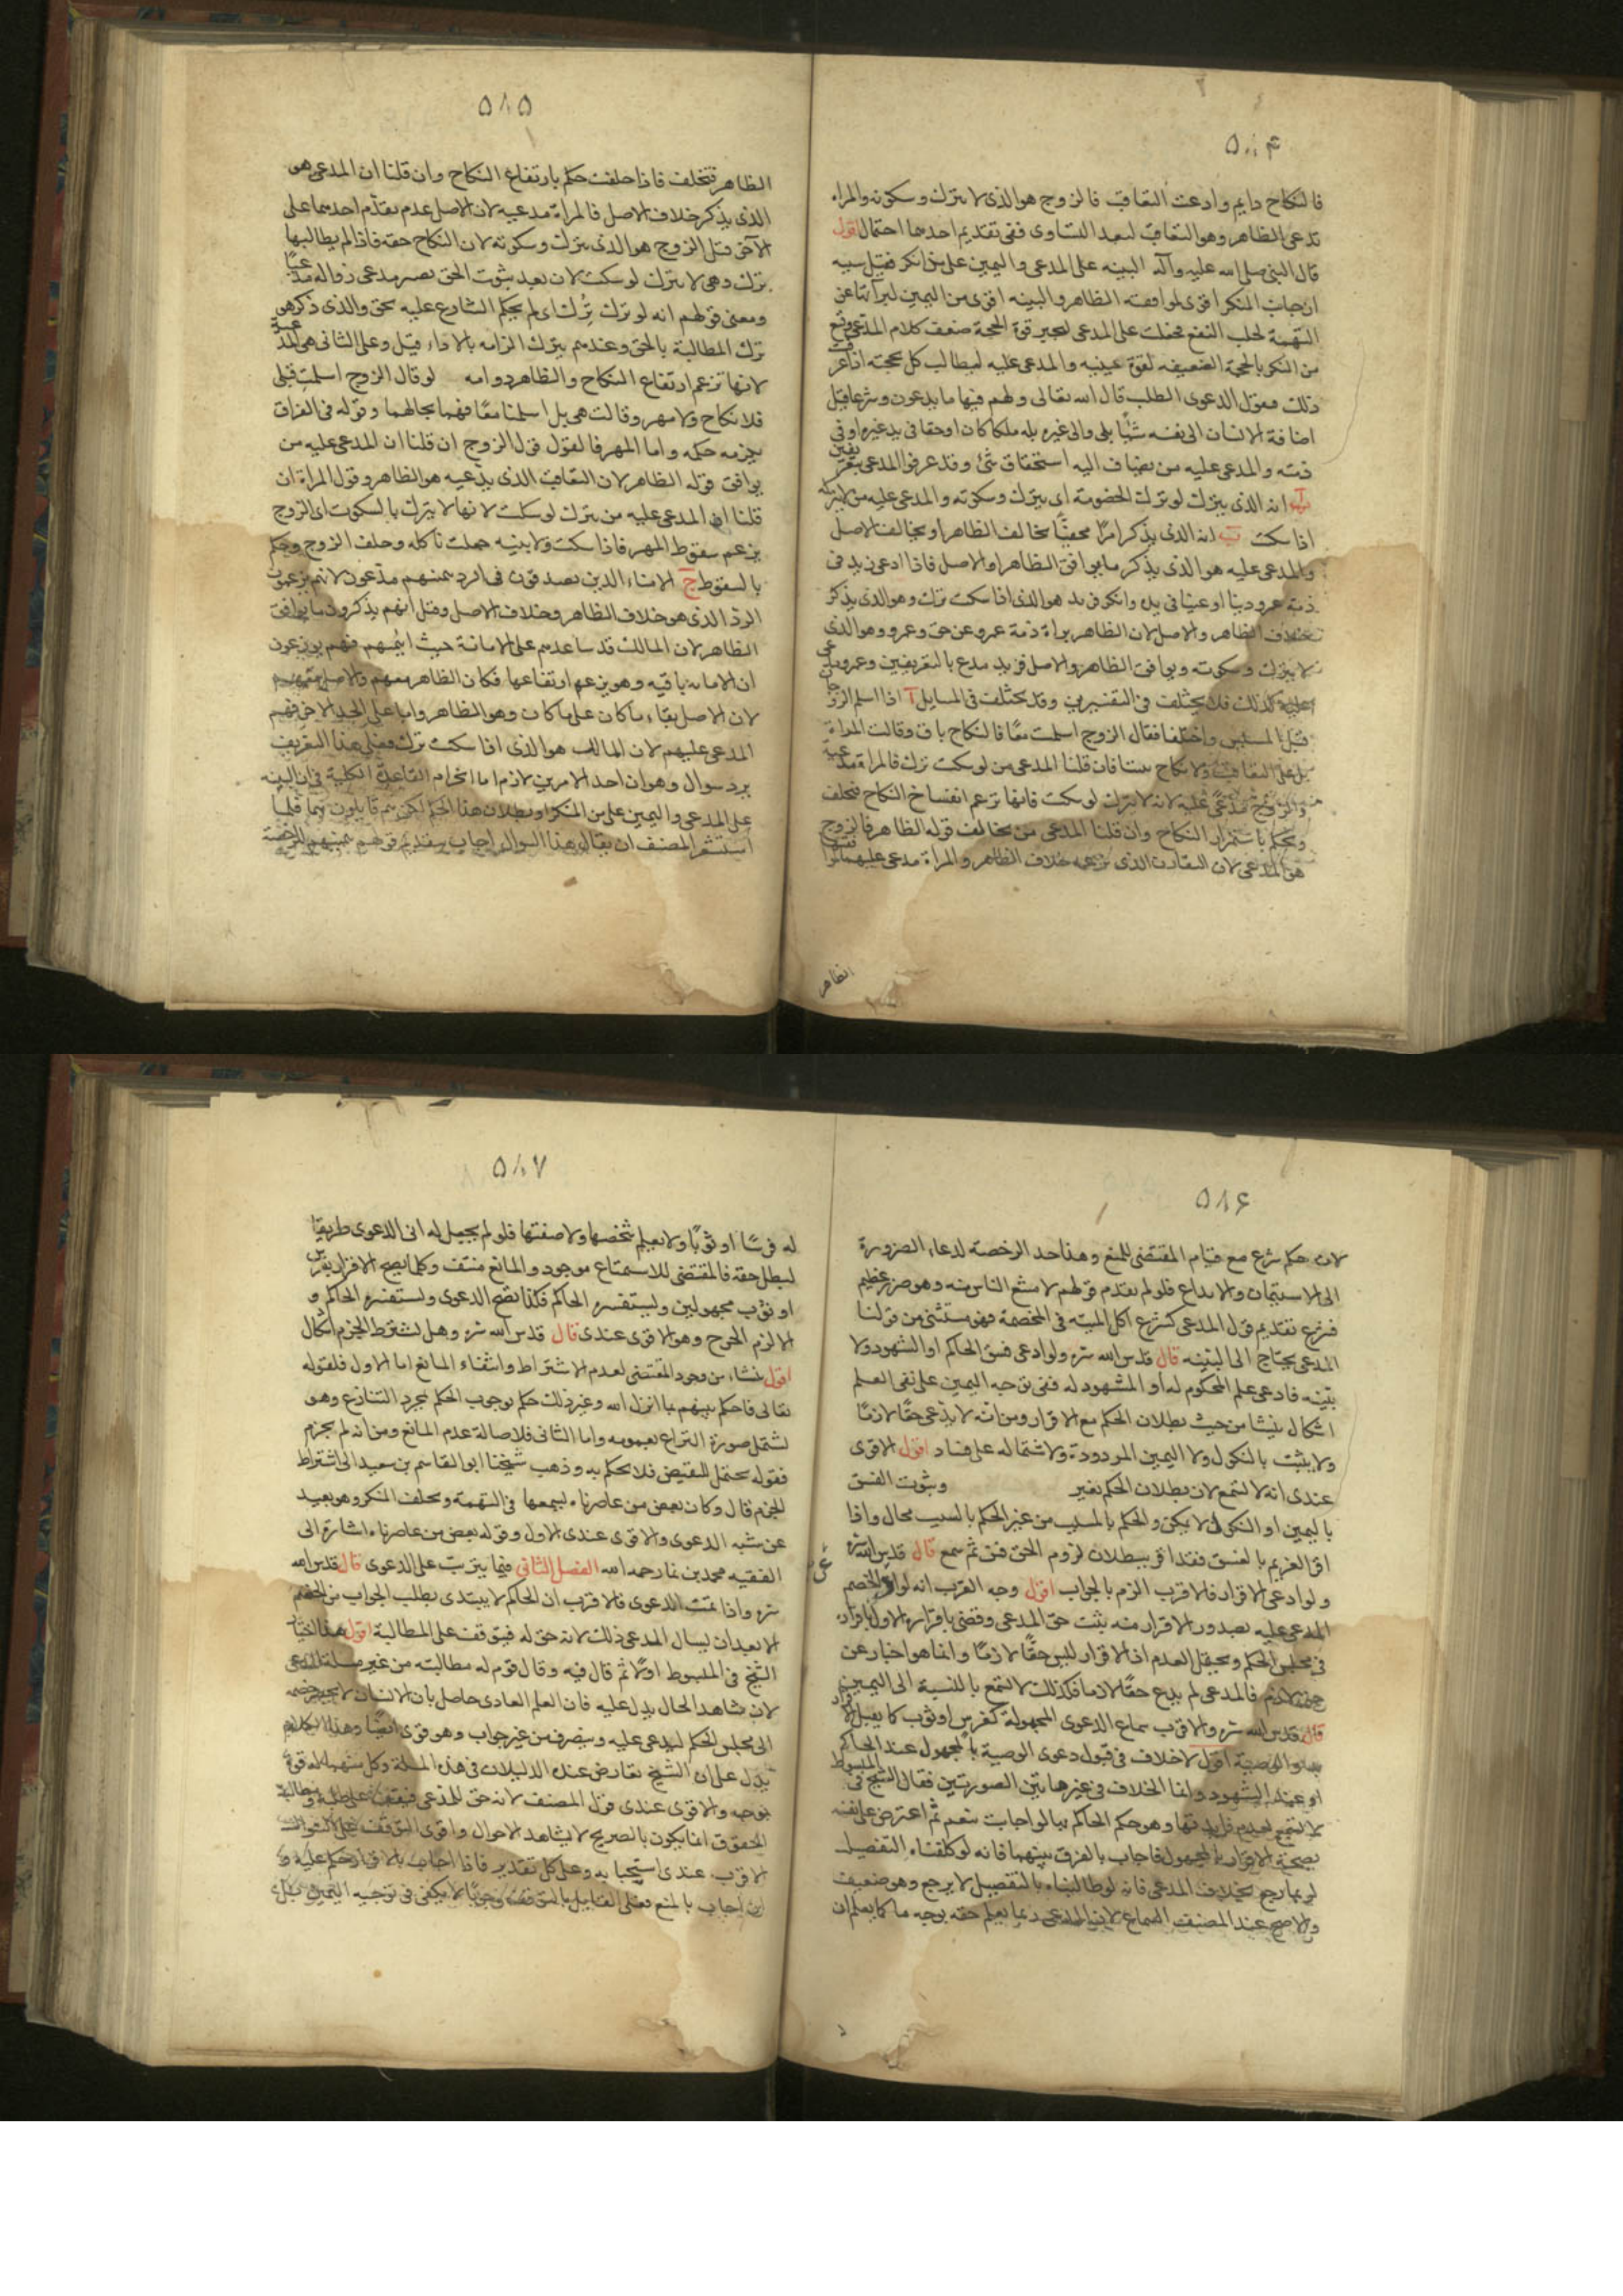 ۵۸۴
فالنكاح دايم وادعت التعاقب فالزوج هو الذى لا يترك وسكوته والمراه
تدعى الظاهر وهو التعاقب لبعد التساوى ففى تقديم احدهما احتمال اقول
قال النبى صلى الله عليه وآله البينه على المدعى واليمين على من انكر فقيل سببه
ان جانب المنكر اقوى لموافقته الظاهر والبينه اقوى من اليمين لبرآئتها عن
التهمة لجلب النفع فجعلت على المدعى لتجبر قوة الحجة ضعف كلام المدعى وقنع
من المنكر بالحجة الضعيفه لقوة جنبته والمدعى عليه ليطالب كل بحجته اذا عرفت
ذلك فنقول الدعوى الطلب قال الله تعالى ولهم فيها ما يدعون وشرعا قيل
اضافة الانسان الى نفسه شيئا بلى والى غيره بله ملكا كان او حقا فى يد غيره او فى
ذمته والمدعى عليه من يضاف اليه استحقاق شئ وقد عرفوا المدعى بتعريفين
آ انه الذى يترك لو ترك الخصومة اى يترك وسكوته والمدعى عليه من لا يترك
اذا سكت ب انه الذى يذكر امرا خفيا يخالف الظاهر او يخالف الاصل
والمدعى عليه هو الذى يذكر ما يوافق الظاهر او الاصل فاذا ادعى زيد فى
ذمة عمرو دينا او عينا فى يده وانكر فزيد هو الذى اذا سكت ترك وهو الذى يذكر
خلاف الظاهر والاصل لان الظاهر براءة ذمة عمرو عن حق وعمرو وهو الذى
لا يترك وسكوته ويوافق الظاهر والاصل فزيد مدع بالتعريفين وعمرو مدعى
عليه كذلك فلا يختلف فى التفسيرين وقد يختلف فى المسايل آ اذا اسلم الزوجان
قبل المسيس واختلفا فقال الزوج اسلمت معا فالنكاح باق وقالت المراة
بل على التعاقب ولا نكاح بيننا فان قلنا المدعى من لو سكت ترك فالمراة مدعية
والزوج مدعى عليه لانه لا يترك لو سكت فانها تزعم انفساخ النكاح فيحلف
ويحكم باستمرار النكاح وان قلنا المدعى من يخالف قوله الظاهر فالزوج
هو المدعى لان التقارن الذى يزعمه خلاف الظاهر والمراة مدعى عليها
الظاهر
۵۸۵
الظاهر فتحلف فاذا حلفت حكم بارتفاع النكاح وان قلنا ان المدعى هو
الذى يذكر خلاف الاصل فالمراة مدعيه لان الاصل عدم تقدم احدهما على
الآخر قبل الزوج هو الذى يترك وسكوته لان النكاح حقه فاذا لم يطالبها
ترك وهى لا تترك لو سكت لان بعد ثبوت الحق يصير مدعى زواله مدعيا
ومعنى قولهم انه لو ترك ترك اى لم يحكم الشارع عليه بحق والذى ذكره هو
ترك المطالبة بالحق وعندهم يترك الزامه بالاداء قيل وعلى الثانى هى المدعية
لانها تزعم ارتفاع النكاح والظاهر دوامه لو قال الزوج اسلمت قبلى
فلا نكاح ولا مهر وقالت هى بل اسلمنا معا فهما بحالهما وقوله فى الفراق
يلزمه حكمه واما المهر فالقول قول الزوج ان قلنا ان المدعى عليه من
يوافق قوله الظاهر لان التعاقب الذى يدعيه هو الظاهر وقول المراة ان
قلنا ان المدعى عليه من يترك لو سكت لانها لا تترك بالسكوت اى الزوج
يزعم سقوط المهر فاذا سكتت ولا بينه جعلت ناكله وحلف الزوج وحكم
بالسقوط ج الامناء الذين يصدقون فى الرد بيمينهم مدعون لانهم يزعمون
الرد الذى هو خلاف الظاهر وخلاف الاصل وقيل انهم يذكرون ما يوافق
الظاهر لان المالك قد ساعدهم على الامانة حيث ائتمنهم فهم يزعمون
ان الامانه باقيه وهو يزعم ارتفاعها فكان الظاهر معهم والاصل معهم
لان الاصل بقاء ما كان على ما كان وهو الظاهر واما على الحد الاخر فهم
المدعى عليهم لان المالك هو الذى اذا سكت ترك فعلى هذا التعريف
يرد سوال وهو ان احد الامرين لازم اما انخرام القاعدة الكلية فى ان البينه
على المدعى واليمين على من المنكر او بطلان هذا الحكم لكن هم قايلون بهما فلما
استشعر المصنف ان يقال هذا السوال اجاب بتقديم قولهم بيمينهم للرخصة
۵۸۶
لان حكم شرع مع قيام المقتضى للمنع وهذا حد الرخصة لدعاء الضرورة
الى الاستيمان والايداع فلو لم يقدم قولهم لامتنع الناس منه وهو ضرر عظيم
فشرع تقديم قول المدعى كشرع اكل الميته فى المخمصة فهو مستثنى من قولنا
المدعى يحتاج الى البينه قال قدس الله سره ولو ادعى فسق الحاكم او الشهود ولا
بينه فادعى علم المحكوم له او المشهود له ففى توجه اليمين على نفى العلم
اشكال ينشا من حيث بطلان الحكم مع الاقرار ومن انه لا يدعى حقا لازما
ولا يثبت بالنكول ولا اليمين المردودة ولاشتماله على فساد اقول الاقوى
عندى انه لا تسمع لان بطلان الحكم بغير وثبوت الفسق
باليمين او النكول لا يمكن والحكم بالمسبب من غير الحكم بالسبب محال واذا
اقر الغريم بالفسق فقد اقر ببطلان لزوم الحق فمن ثم سمع قال قدس الله سره
ولو ادعى الاقرار فالاقرب الزم بالجواب اقول وجه القرب انه لو اقر الخصم
المدعى عليه بصدور الاقرار منه يثبت حق المدعى وقضى باقراره الاول باقراره
فى مجلس الحكم ويحتمل العدم اذ الاقرار ليس حقا لازما وانما هو اخبار عن
حق لازم فالمدعى لم يدع حقا لازما فكذلك لا تسمع بالنسبة الى اليمين
قال قدس الله سره والاقرب سماع الدعوى المجهولة كفرس او ثوب كما يقبل الاقرار
به والوصية اقول لا خلاف فى قبول دعوى الوصية بالمجهول عند الحاكم
او عند الشهود وانما الخلاف فى غيرها بين الصورتين فقال الشيخ فى المبسوط
لا تسمع لعدم فايدتها وهو حكم الحاكم بها لو اجاب بنعم ثم اعترض على نفسه
بصحة الاقرار بالمجهول فاجاب بالفرق بينهما فانه لو كلفناه التفصيل
لربما رجع بخلاف المدعى فانه لو طالبناه بالتفصيل لا يرجع وهو ضعيف
والاصح عند المصنف السماع لان المدعى ربما يعلم حقه بوجه ما كما يعلم ان
۵۸۷
له فرسا او ثوبا ولا يعلم شخصها ولا صفتها فلو لم يجعل له الى الدعوى طريقا
لبطل حقه فالمقتضى للاستمتاع موجود والمانع منتف وكما يصح الاقرار بفرس
او ثوب مجهولين ويستفسره الحاكم فكذا تصح الدعوى ويستفسره الحاكم و
الا لزم الحرج وهو الاقوى عندى قال قدس الله سره وهل يشترط الجزم اشكال
اقول ينشاء من وجود المقتضى لعدم الاشتراط وانتفاء المانع اما الاول فلقوله
تعالى فاحكم بينهم بما انزل الله وغير ذلك حكم بوجوب الحكم بمجرد التنازع وهو
يشمل صورة النزاع بعمومه واما الثانى فلاصالة عدم المانع ومن انه لم يجزم
فقوله محتمل للنقيض فلا يحكم به وذهب شيخنا ابو القاسم بن سعيد الى اشتراط
الجزم قال وكان بعض من عاصرناه يسمعها فى التهمة ويحلف المنكر وهو بعيد
عن شبه الدعوى والاقوى عندى الاول وقوله بعض من عاصرناه اشارة الى
الفقيه محمد بن نما رحمه الله الفصل الثانى فيما يترتب على الدعوى قال قدس الله
سره واذا تمت الدعوى فالاقرب ان الحاكم لا يبتدى بطلب الجواب من الخصم
الا بعد ان يسال المدعى ذلك لانه حق له فيتوقف على المطالبة اقول هذا اختيار
الشيخ فى المبسوط اولا ثم قال فيه وقال قوم له مطالبته من غير مسلة المدعى
لان شاهد الحال يدل عليه فان العلم العادى حاصل بان الانسان لا يحضر خصمه
الى مجلس الحكم ليدعى عليه وينصرف من غير جواب وهو قوى ايضا وهذا الكلام
يدل على ان الشيخ تعارض عنده الدليلان فى هذه المسلة وكل منهما له قوة
بوجه والاقوى عندى قول المصنف لانه حق المدعى فيتوقف على طلبه ومطالبة
الحقوق انما يكون بالصريح لا بشاهد الاحوال واقوى التوقف على السوال
الاقرب عندى استحبابه وعلى كل تقدير فاذا اجاب بالاقرار حكم عليه و
ان اجاب بالمنع فعلى القايل بالتوقف وجوبا لا يكفى فى توجيه اليمين